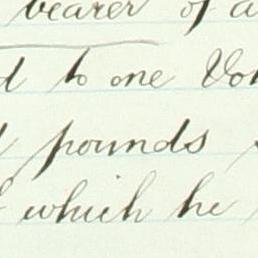 bearer of a
to one Vo
pounds
which he